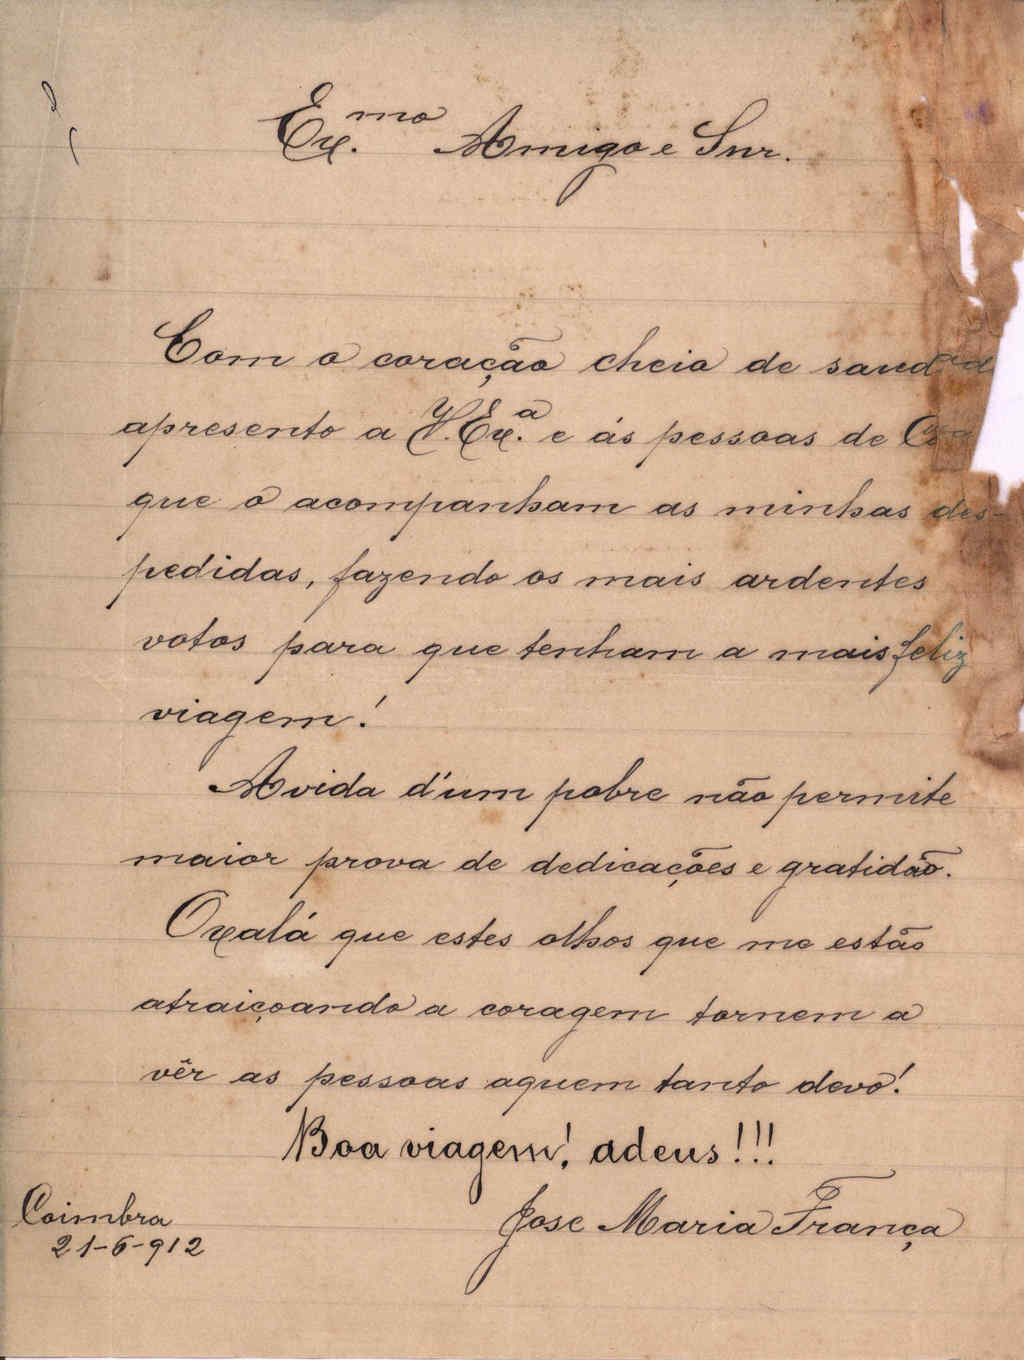 Ex.mo Amigo e Snr.
Com o coração cheio de
apresento a V. Ex.a e ás pessoas de
que o acompanham as minhas des-
pedidas, fazendo os mais ardentes
votos para que tenham a mais feliz
viagem!
A vida d'um pobre não permite
maior prova de dedicações e gratidão.
Oxalá que estes olhos que me estão
atraiçoando a coragem tornem a
vêr as pessoas aquem tanto devo!
Boa viagem! adeus!!!
Jose Maria França
Coimbra
21-6-912